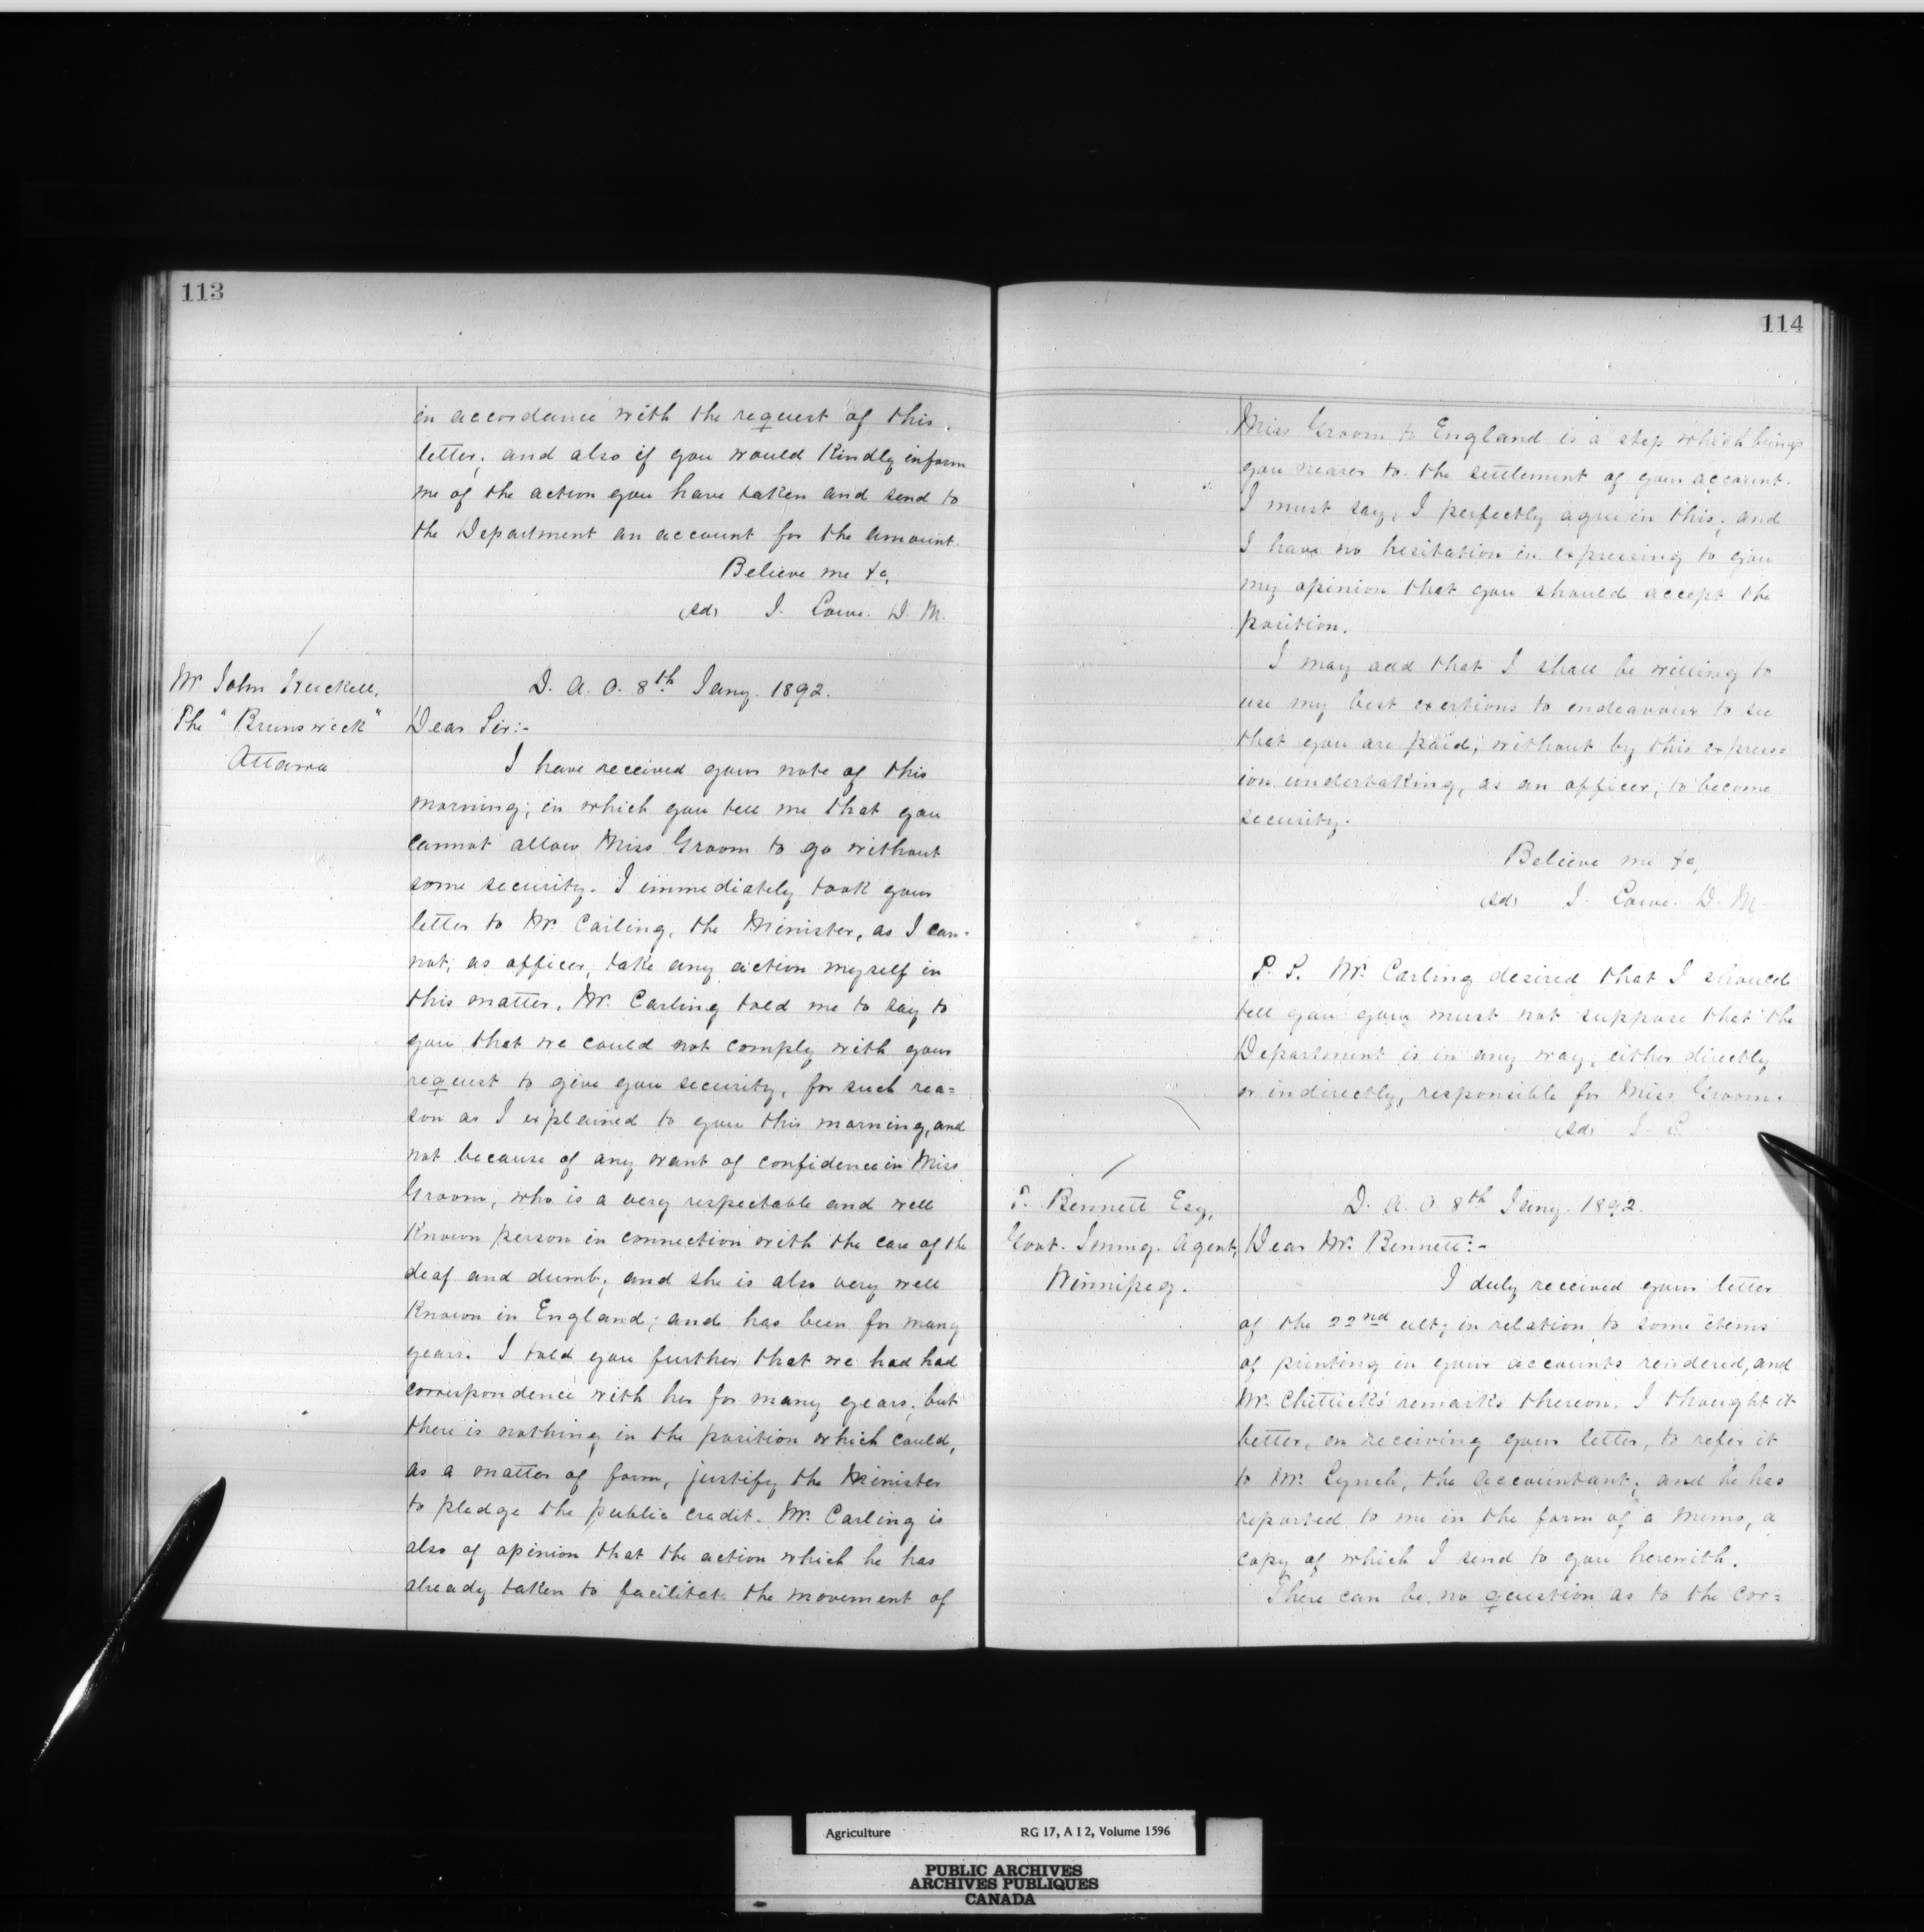 113
in accordance with the request of this
letter; and also if you would kindly inform
me of the action you have taken and send to
the Department an account for the amount.
Believe me &c,
(sd) J. Lowe. D. M.
Mr John
The "Brunswick"
Ottawa
D. A. O. 8th Jany. 1892.
Dear Sir:-
I have received your note of this
morning; in which you tell me that you
cannot allow Miss Groom to go without
some security. I immediately took your
letter to Mr. Carling, the Minister, as I can-
not, as officer, take any action myself in
this matter. Mr. Carling told me to say to
you that we could not comply with your
request to give you security, for such rea=
son as I explained to you this morning, and
not because of any want of confidence in Miss
Groom, who is a very respectable and well
known person in connection with the care of the
deaf and dumb; and she is also very well
known in England; and has been for many
years. I told you further that we had had
correspondence with her for many years; but
there is nothing in the position which could,
as a matter of form, justify the Minister
to pledge the public credit. Mr. Carling is
also of opinion that the action which he has
already taken to facilitate the movement of
114
Miss Groom to England is a step which brings
you nearer to the settlement of your account.
I must say, I perfectly agree in this; and
I have no hesitation in expressing to you
my opinion that you should accept the
position.
I may add that I shall be willing to
use my best exertions to endeavour to see
that you are paid; without by this express=
ion undertaking, as an officer, to become
security.
Believe me &c,
(sd) J. Lowe. D. M.
P. S. Mr. Carling desired that I should
tell you you must not suppose that the
Department is in any way, either directly
or indirectly, responsible for Miss Groom.
(sd) J. L.
T. Bennett Esq,
Govt. Immg. Agent,
Winnipeg.
D. A. O. 8th Jany. 1892.
Dear Mr. Bennett:-
I duly received your letter
of the 22nd ult; in relation to some items
of printing in your accounts rendered, and
Mr. Chittick's remarks thereon. I thought it
better, on receiving your letter, to refer it
to Mr. Lynch, the accountant; and he has
reported to me in the form of a Memo, a
copy of which I send to you herewith.
There can be no question as to the cor=
Agriculture RG 17, A I 2, Volume 1596
PUBLIC ARCHIVES
ARCHIVES PUBLIQUES
CANADA